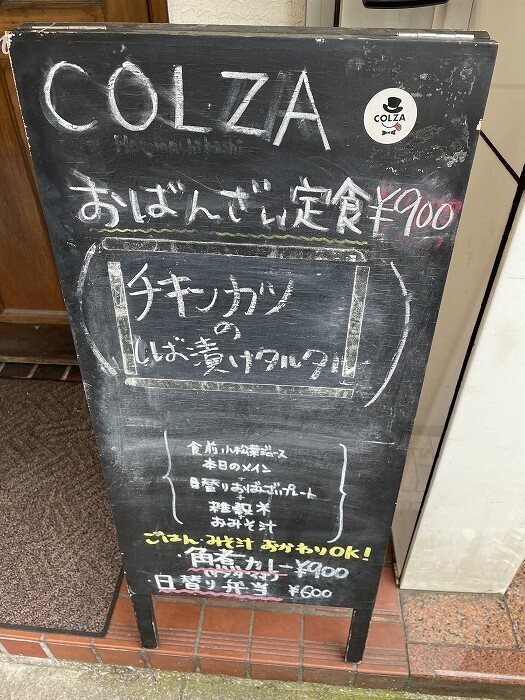 COLZA
COLZA
おばんざい定食¥900
チキンカツ
の
しば漬けタルタル
食前小松菜ジュース
本日のメイン
+
日替りおばんざいプレート
+
雑穀米
おみそ汁
ごはん・みそ汁 おかわりOK!
・角煮カレー¥900
・日替り弁当 ¥600